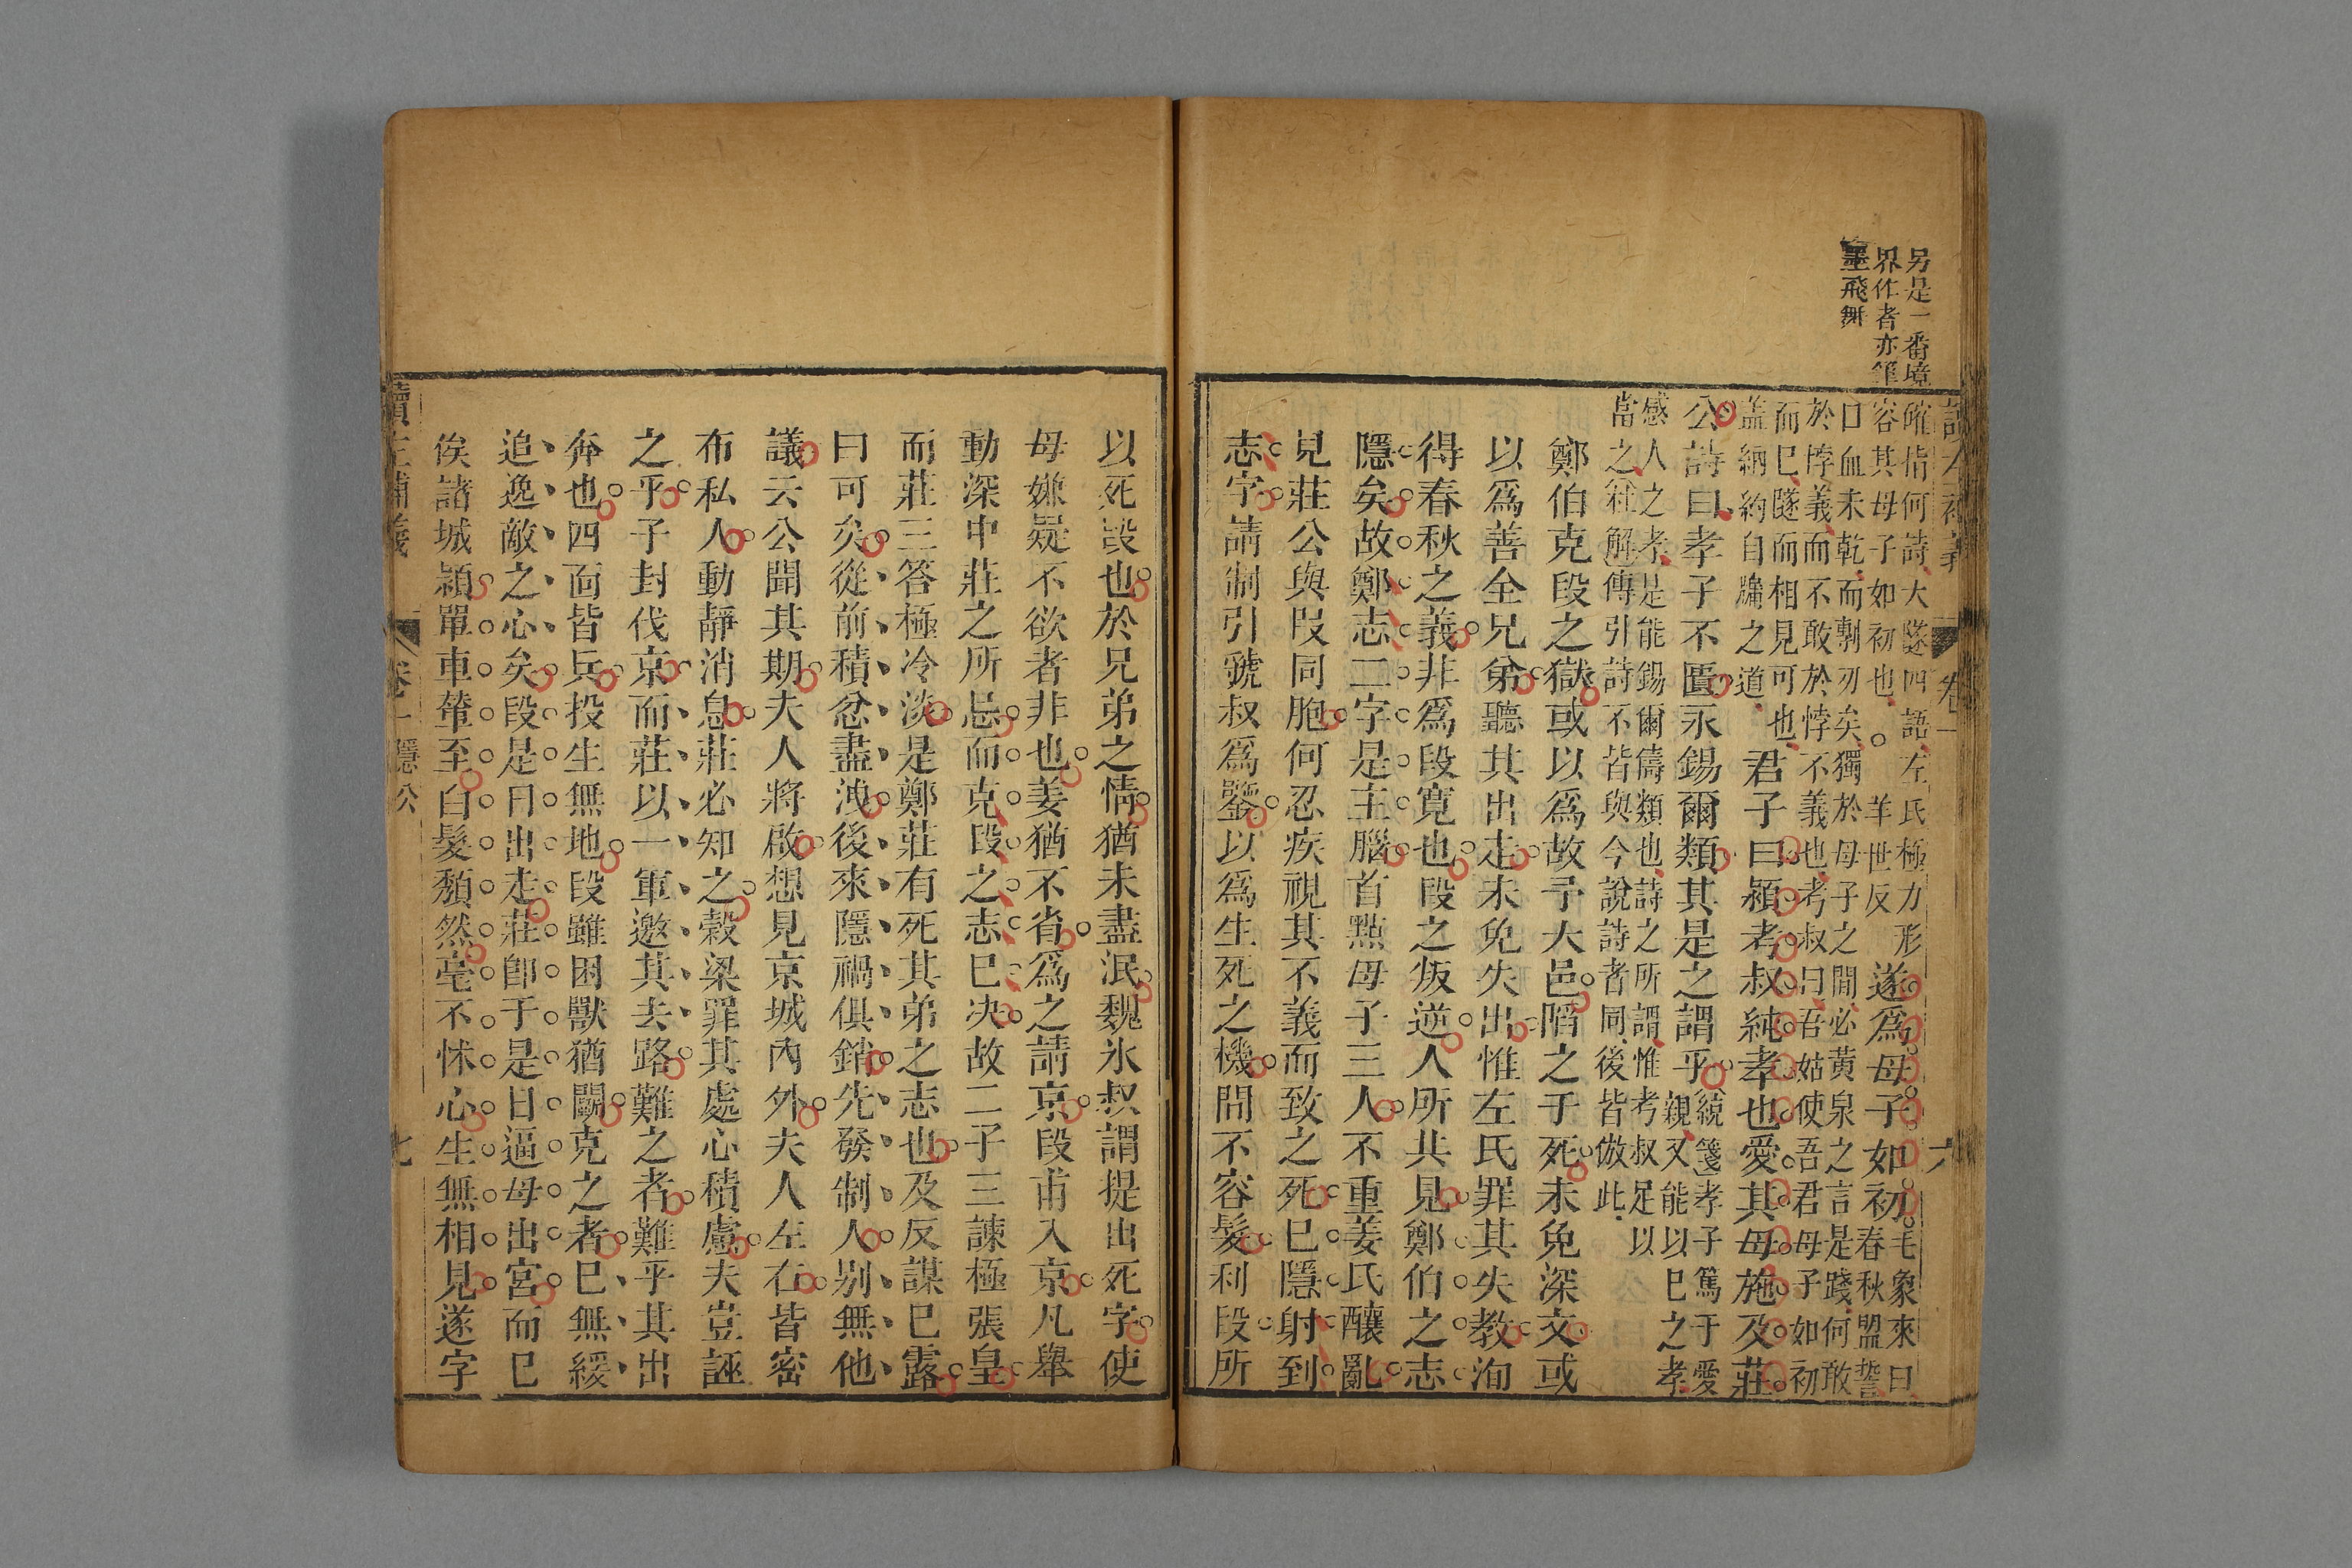 另是一番境
界作者亦筆
墨飛舞
讀左補義 卷一 六
確指何詩大隧四語左氏極力形
容其母子如初也 羊世反
遂爲母子如初
毛象來曰
春秋盟誓
口血未乾而剸刃矣獨於母子之間必黃泉之言是踐何敢
於悖義而不敢於悖不義也考叔曰吾姑使吾君母子如初
而已隧而相見可也
蓋納約自牖之道
君子曰潁考叔純孝也愛其母施及莊
公詩曰孝子不匱永錫爾類其是之謂乎
箋孝子篤于愛
親又能以已之孝
感人之孝是能錫爾儔類也詩之所謂惟考叔足以
當之註解傳引詩不皆與今說詩者同後皆倣此
鄭伯克段之獄或以爲故予大邑陷之于死未免深文或
以爲善全兄弟聽其出走未免失出惟左氏罪其失教洵
得春秋之義非爲段寬也段之叛逆人所共見鄭伯之志
隱矣故鄭志二字是主腦首點母子三人不重姜氏釀亂
見莊公與段同胞何忍疾視其不義而致之死已隱射到
志字請制引虢叔爲鑒以爲生死之機間不容髮利段所
以死段也於兄弟之情猶未盡泯魏氷叔謂提出死字使
母嫌疑不欲者非也姜猶不省爲之請京段甫入京凡舉
動深中莊之所忌而克段之志已决故二子三諫極張皇
而莊三答極冷淡是鄭莊有死其弟之志也及反謀已露
曰可矣從前積忿盡洩後來隱禍俱銷先發制人别無他
議云公聞其期夫人將啟想見京城內外夫人左右皆密
布私人動靜消息莊必知之穀梁罪其處心積慮夫豈誣
之乎子封伐京而莊以一軍邀其去路難之者難乎其出
奔也四面皆兵投生無地段雖困獸猶鬬克之者已無緩
追逸敵之心矣段是日出走莊卽于是日逼母出宮而已
俟諸城潁單車犖至白髮頽然毫不怵心生無相見遂字
讀左補義 卷一 隱公 七